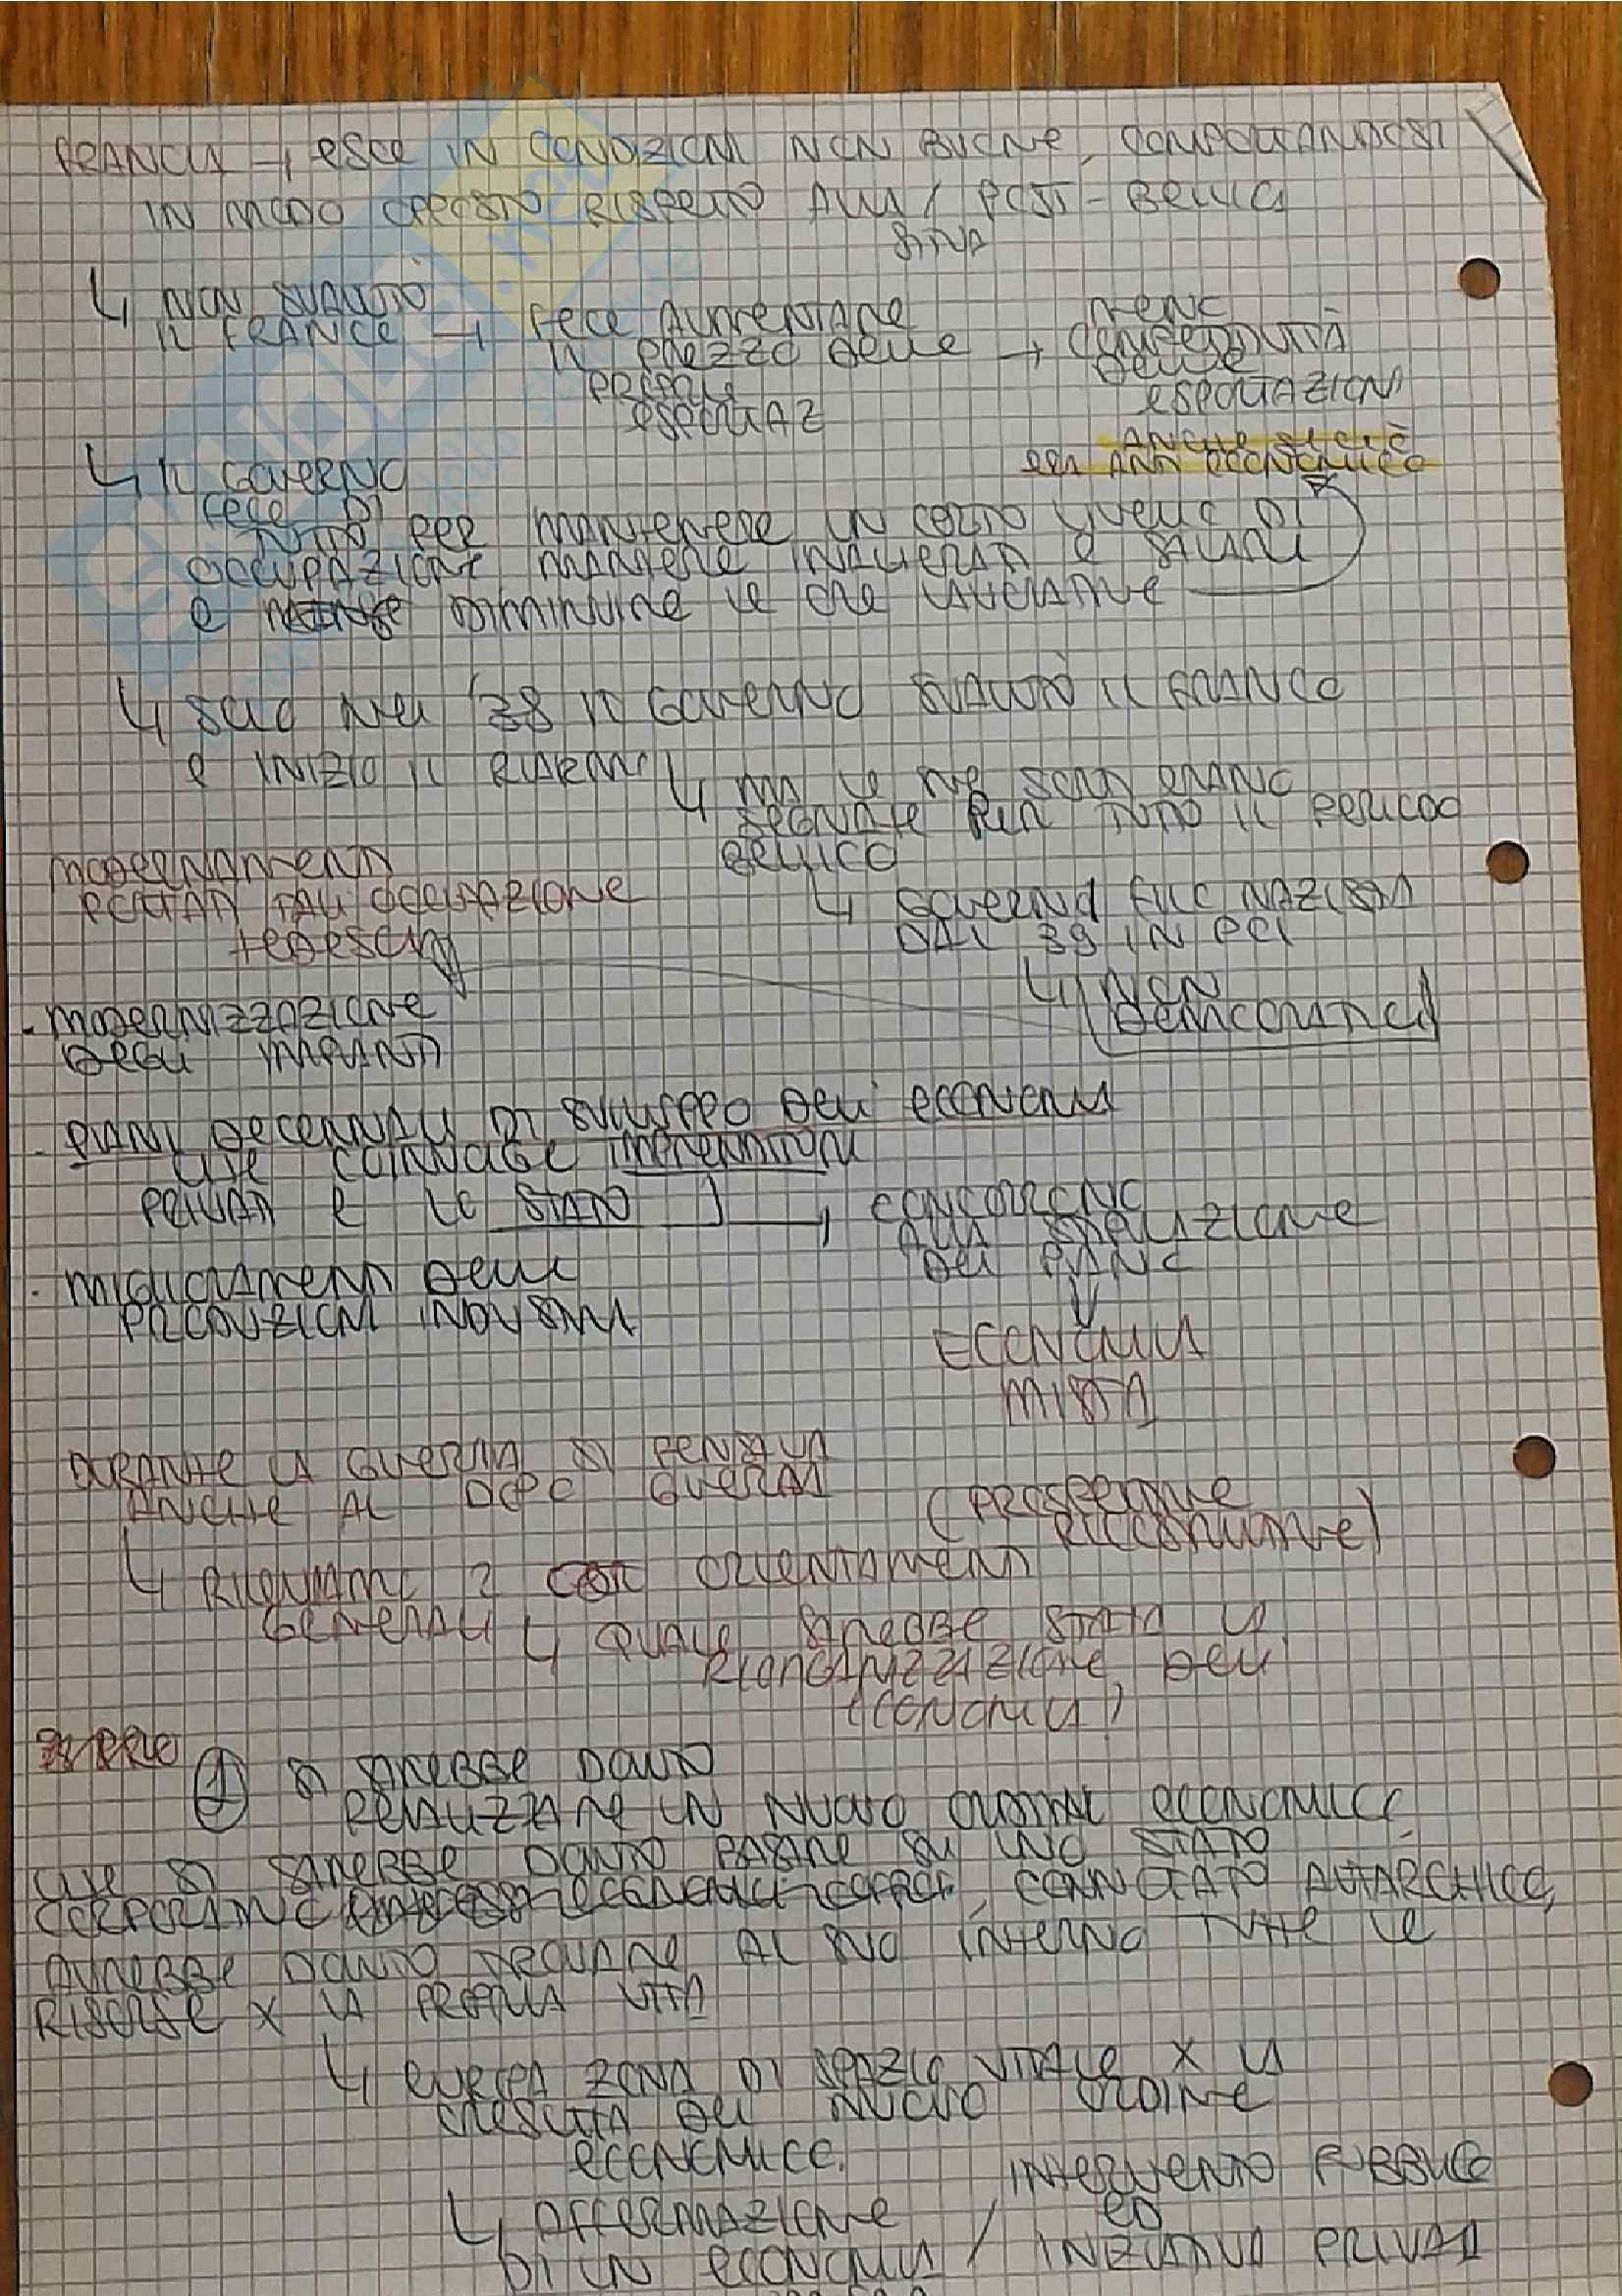 FRANCIA → ESCE IN CONDIZIONI NON BUONE, COMPORTANDOSI
IN MODO OPPOSTO RISPETTO ALLA / POST-BELLICA
SITUA
↳ NON SVALUTÒ
IL FRANCO → FECE AUMENTARE
IL PREZZO DELLE → MENO
COMPETITIVITÀ
DELLE
ESPORTAZIONI
PROPRIE
ESPORTAZ
ANCHE SE CIÒ È
↳ IL GOVERNO
FECE DI
TUTTO PER MANTENERE UN CERTO LIVELLO DI
OCCUPAZIONE MANTENERE INALTERATI E SALARI
E DIMINUIRE LE ORE LAVORATIVE
↳ SOLO NEL '38 IL GOVERNO SVALUTÒ IL FRANCO
E INIZIO IL RIARMO
↳ MA LE SORTI ERANO
SEGNATE PER TUTTO IL PERIODO
BELLICO
MODERNAMENTI
PORTATI DALL OCCUPAZIONE
TEDESCA
↳ GOVERNO FILO NAZISTA
DAL 39 IN POI
↳ NON
DEMOCRATICI
- MODERNIZZAZIONE
DEGLI IMPIANTI
- PIANI DECENNALI DI SVILUPPO DELL' ECONOMIA
CHE COINVOLGE IMPRENDITORI
PRIVATI E LO STATO ] → CONCORRONO
ALLA STIPULAZIONE
DEL PIANO
↓
ECONOMIA
MISTA
· MIGLIORAMENTI DELLE
PRODUZIONI INDUSTRIALI
DURANTE LA GUERRA SI PENSAVA
ANCHE AL DOPO GUERRA
(PROSPETTIVE
RICOSTRUTTIVE)
↳ RIGUARDANO 2 ORIENTAMENTI
GENERALI ↳ QUALE SAREBBE STATA LA
RIORGANIZZAZIONE DELL'
ECONOMIA)
① SI SAREBBE DOVUTO
REALIZZARE UN NUOVO ORDINE ECONOMICO
CHE SI SAREBBE DOVUTO BASARE SU UNO STATO
CORPORATIVO, CONNOTATO AUTARCHICO,
AVREBBE DOVUTO TROVARE AL SUO INTERNO TUTTE LE
RISORSE X LA PROPRIA VITA
↳ EUROPA ZONA DI SPAZIO VITALE X LA
CRESCITA DEL NUOVO ORDINE
ECONOMICO.
↳ AFFERMAZIONE
DI UN ECONOMIA / INTERVENTO PUBBLICO
ED
INIZIATIVA PRIVATA